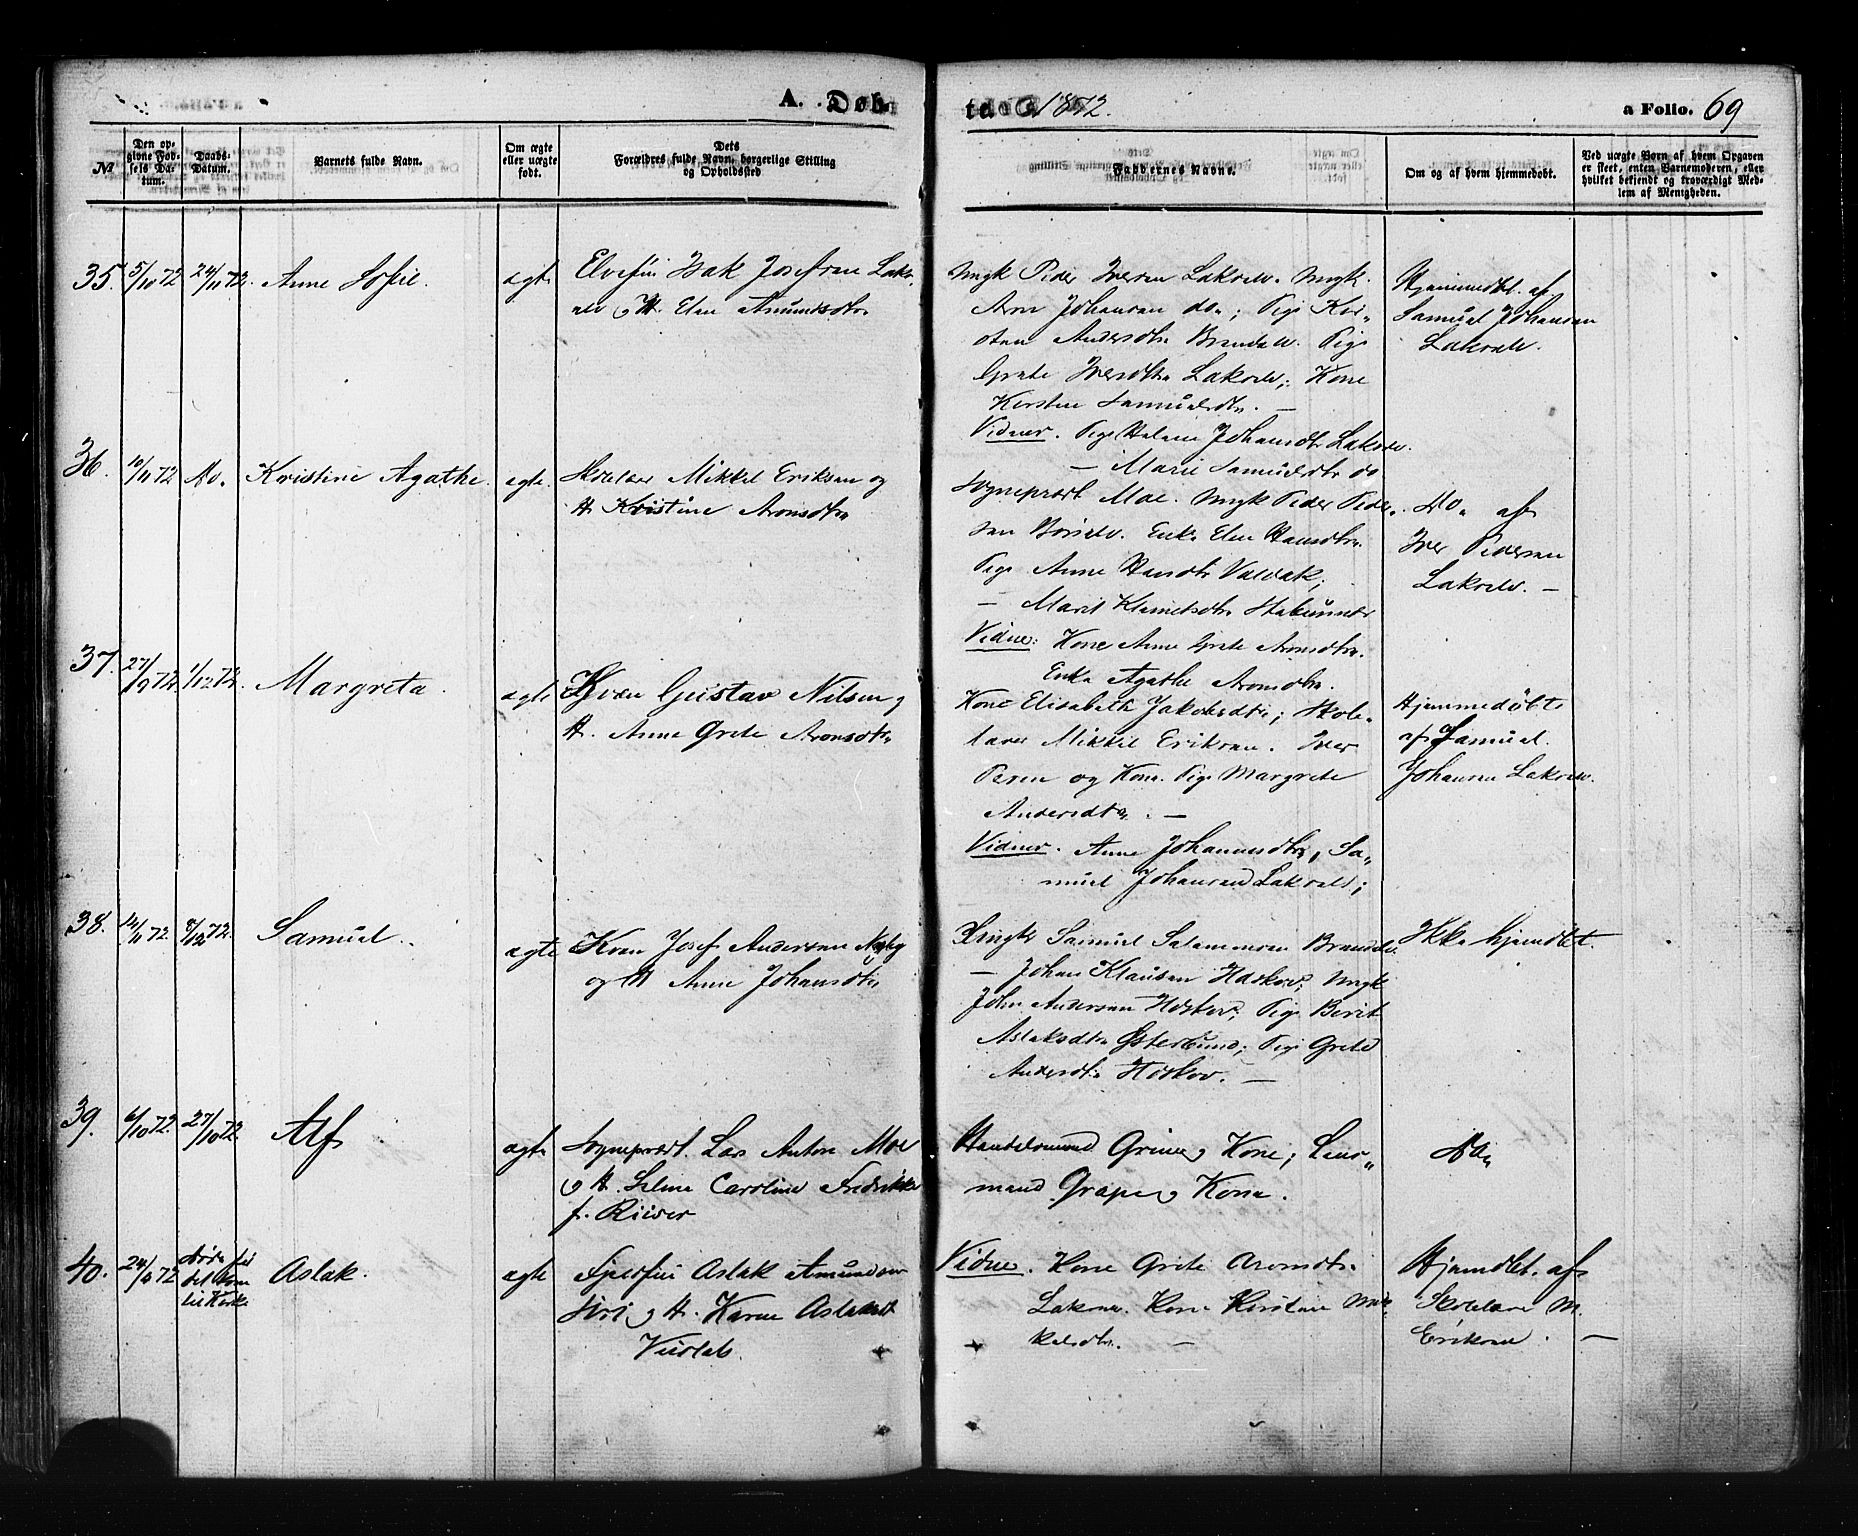 A. Døb-
te 1872.
a Folio. 69
№
Den op-
givne Fød-
sels Da-
tum.
Daabs-
Datum.
Barnets fulde Navn.
Om ægte
eller uægte
født.
Dets
Forældres fulde Navn, borgerlige Stilling
og Opholdssted
Faddernes Navne.
Om og af hvem hjemmedøbt.
Ved uægte Børn af hvem Opgaven
er skeet, enten Barnemoderen, eller
hvilket bekjendt og troværdigt Med-
lem af Menigheden.
35. 5/10 72 24/11 72. Anne Sofie. ægte
Elvefin Isak Josefsen Laks-
elv og H. Elen Amundsdtr
Ungk Peder Iversen Lakselv. Ungk.
Aron Johansen do; Pige Kir-
sten Andersdtr Brendelv. Pige
Grete Iversdtr Lakselv; Kone
Kirsten Samuelsdtr. —
Vidner. Pige Helene Johansdtr Lakselv.
— Marie Samuelsdtr do
Hjemmedbt. af
Samuel Johansen
Lakselv.
36. 10/11 72 do. Kristine Agathe. ægte.
Skolelær Mikkel Eriksen og
H Kristine Aronsdtr
Sognepræst Moe. Ungk Peder Peder-
sen Børselv. Enke Elen Hansdtr.
Pige Anne Hansdtr Valvak;
— Marit Klemetsdtr Stabursnes
Vidne: Kone Anne Grete Aronsdtr.
Enke Agathe Aronsdtr.
Do. af
Iver Pedersen
Lakselv. —
37. 27/9 72 1/12 72. Margreta. ægte
Kvæn Gustav Nilsen og
H. Anne Grete Aronsdtr
Kone Elisabeth Jakobsdtr; Skole-
lærer Mikkel Eriksen. Iver
Persen og Kone. Pige Margrete
Andersdtr. —
Vidner. Anne Johannesdtr, Sa-
muel Johansen Lakselv;
Hjemmedøbt
af Samuel
Johansen Lakselv.
38. 14/11 72. 8/12 72. Samuel. ægte
Kvæn Josef Andersen Nyby
og H Anne Johansdtr
Ungk Samuel Salamonsen Brendelv.
— Johan Klausen Hdskov; Ungk
John Andersen Hdskov; Pige Berit
Aslaksdtr Østerbund; Pige Grete
Andersdtr Hdskov. —
Ikke hjemdbt.
39. 6/10 72. 27/10 72. Alf ægte
Sognepræst. Lars Anton Moe
og H. Selma Caroline Fredrikke
f. Riiser
Handelsmand Griner og Kone; Lens-
mand Grape og Kone.
Do.
40. 72 Døde før
det kom
til Kirke
Aslak. ægte
Fjeldfin Aslak Amundsen
Siri og H. Karen Aslaksdt
Vidne. Kone Grete Aronsdtr
Lakselv. Kone Kirsten Mik-
kelsdtr. —
Hjemdbt. af
Skolelærer M.
Eriksen. —